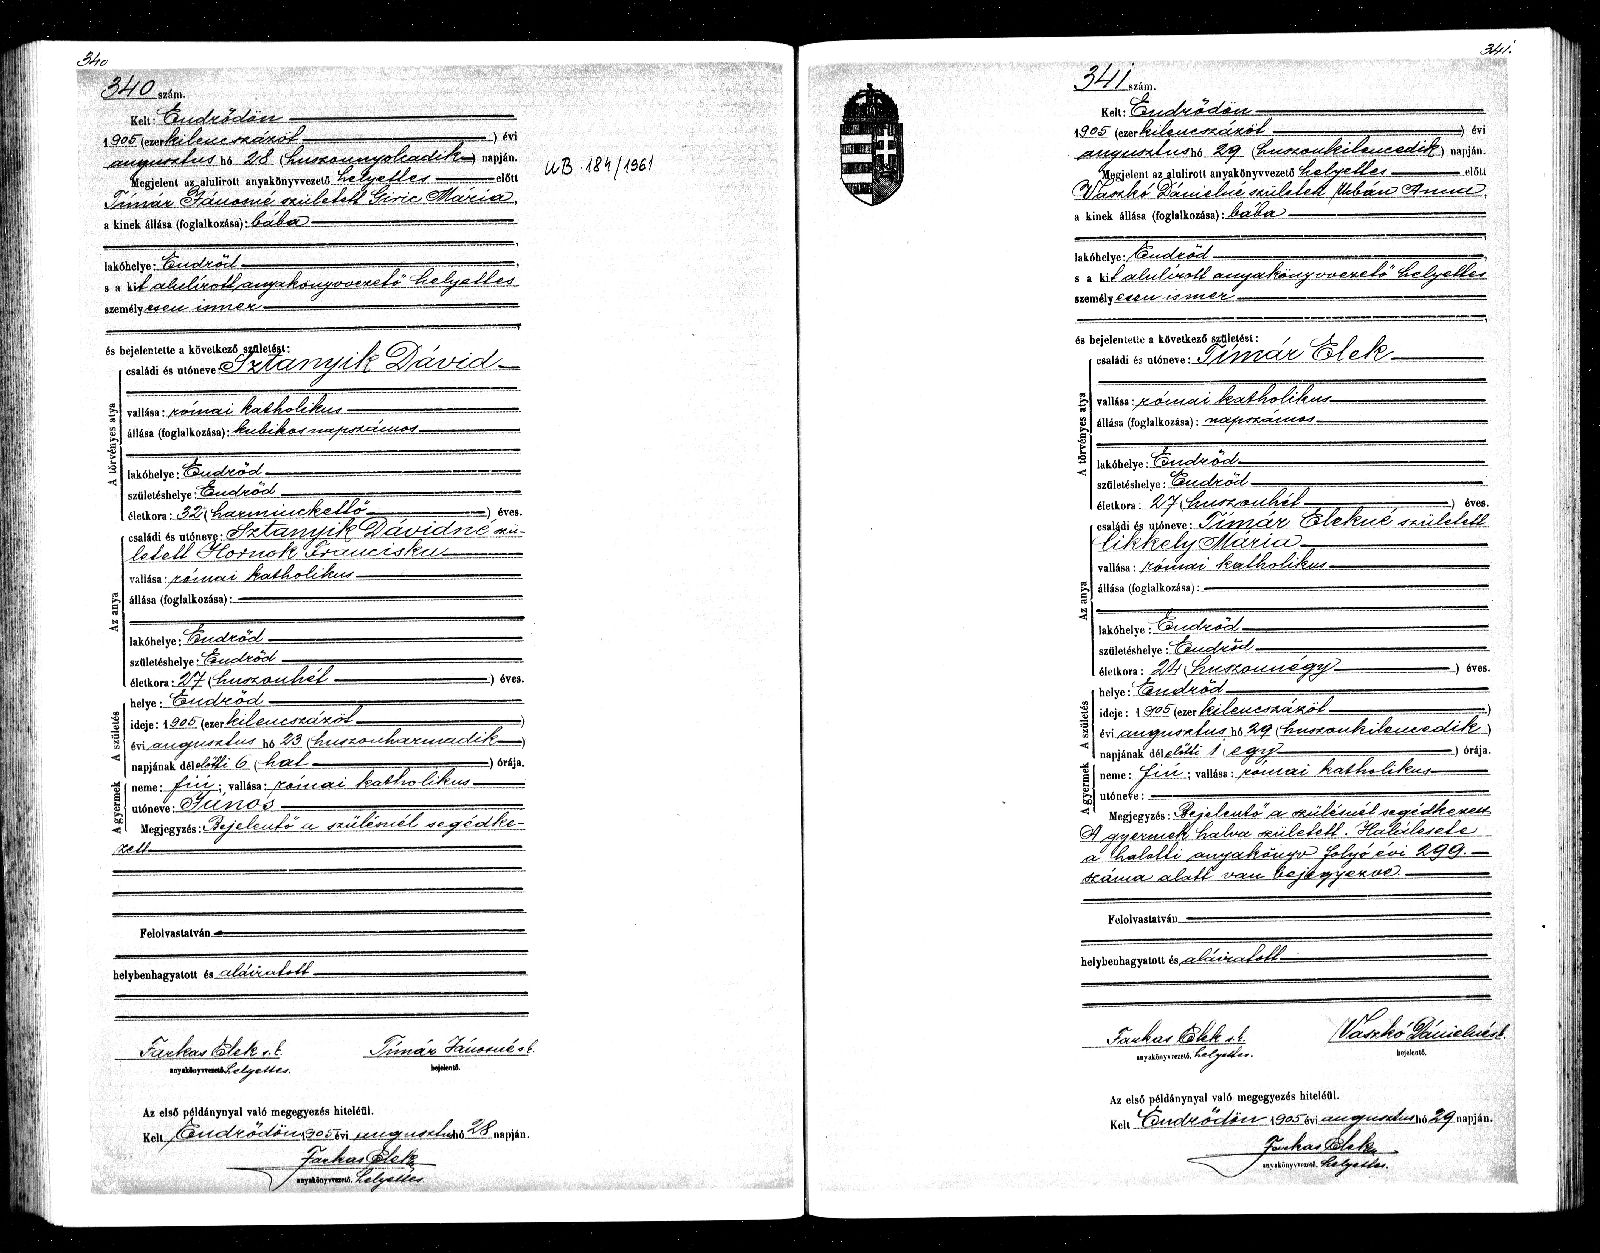 340
340 szám.
Kelt: Endrődön
1905 (ezer kilencszázöt) évi
augusztus hó 28 (huszonnyolcadik) napján.
Megjelent az alulirott anyakönyvvezető helyettes előtt
Tímár Jánosné született Giric Mária,
a kinek állása (foglalkozása): bába
lakóhelye: Endrőd
s a kit alulírott anyakönyvvezető helyettes
személyesen ismer
és bejelentette a következő születést:
A törvényes atya
családi és utóneve: Sztanyik Dávid
vallása: római katholikus
állása (foglalkozása): kubikos napszámos
lakóhelye: Endrőd
születéshelye: Endrőd
életkora: 32 (harminckettő) éves.
Az anya
családi és utóneve: Sztanyik Dávidné szü-
letett Hornok Franciska
vallása: római katholikus
állása (foglalkozása):
lakóhelye: Endrőd
születéshelye: Endrőd
életkora: 27 (huszonhét) éves.
A születés
helye: Endrőd
ideje: 1905 (ezer kilencszázöt)
évi augusztus hó 23 (huszonharmadik)
napjának délelőtti 6 (hat) órája.
A gyermek
neme: fiú; vallása: római katholikus
utóneve: János
Megjegyzés: Bejelentő a szülésnél segédke-
zett
Felolvastatván
helybenhagyatott és aláiratott
Farkas Elek s.k. Tímár Jánosné s.k.
anyakönyvvezető helyettes. bejelentő.
Az első példánynyal való megegyezés hiteléül.
Kelt Endrődön 1905 évi augusztus hó 28 napján.
Farkas Elek
anyakönyvvezető. helyettes.
UB 184/1961
341.
341 szám.
Kelt: Endrődön
1905 (ezer kilencszázöt) évi
augusztus hó 29 (huszonkilencedik) napján.
Megjelent az alulirott anyakönyvvezető helyettes előtt
Vaszkó Dánielné született Urbán Anna,
a kinek állása (foglalkozása): bába
lakóhelye: Endrőd
s a kit alulírott anyakönyvvezető helyettes
személyesen ismer
és bejelentette a következő születést:
A törvényes atya
családi és utóneve: Tímár Elek
vallása: római katholikus
állása (foglalkozása): napszámos
lakóhelye: Endrőd
születéshelye: Endrőd
életkora: 27 (huszonhét) éves.
Az anya
családi és utóneve: Tímár Elekné született
Mária
vallása: római katholikus
állása (foglalkozása):
lakóhelye: Endrőd
születéshelye: Endrőd
életkora: 24 (huszonnégy) éves.
A születés
helye: Endrőd
ideje: 1905 (ezer kilencszázöt)
évi augusztus hó 29 (huszonkilencedik)
napjának délelőtti 1 (egy) órája.
A gyermek
neme: fiú; vallása: római katholikus
utóneve:
Megjegyzés: Bejelentő a szülésnél segédkezett
A gyermek halva született. Halálesete
a halotti anyakönyv folyó évi 299.
száma alatt van bejegyezve.
Felolvastatván
helybenhagyatott és aláiratott
Farkas Elek s.k. Vaszkó Dánielné s.k.
anyakönyvvezető. helyettes. bejelentő.
Az első példánynyal való megegyezés hiteléül.
Kelt Endrődön 1905 évi augusztus hó 29 napján.
Farkas Elek
anyakönyvvezető. helyettes.